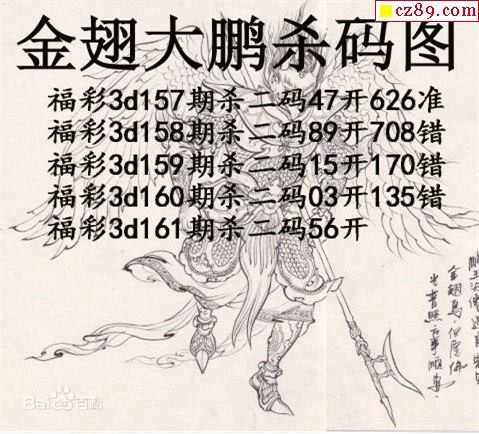 cz89.com
金翅大鹏杀码图
福彩3d157期杀二码47开626准
福彩3d158期杀二码89开708错
福彩3d159期杀二码15开170错
福彩3d160期杀二码03开135错
福彩3d161期杀二码56开
Bai百科